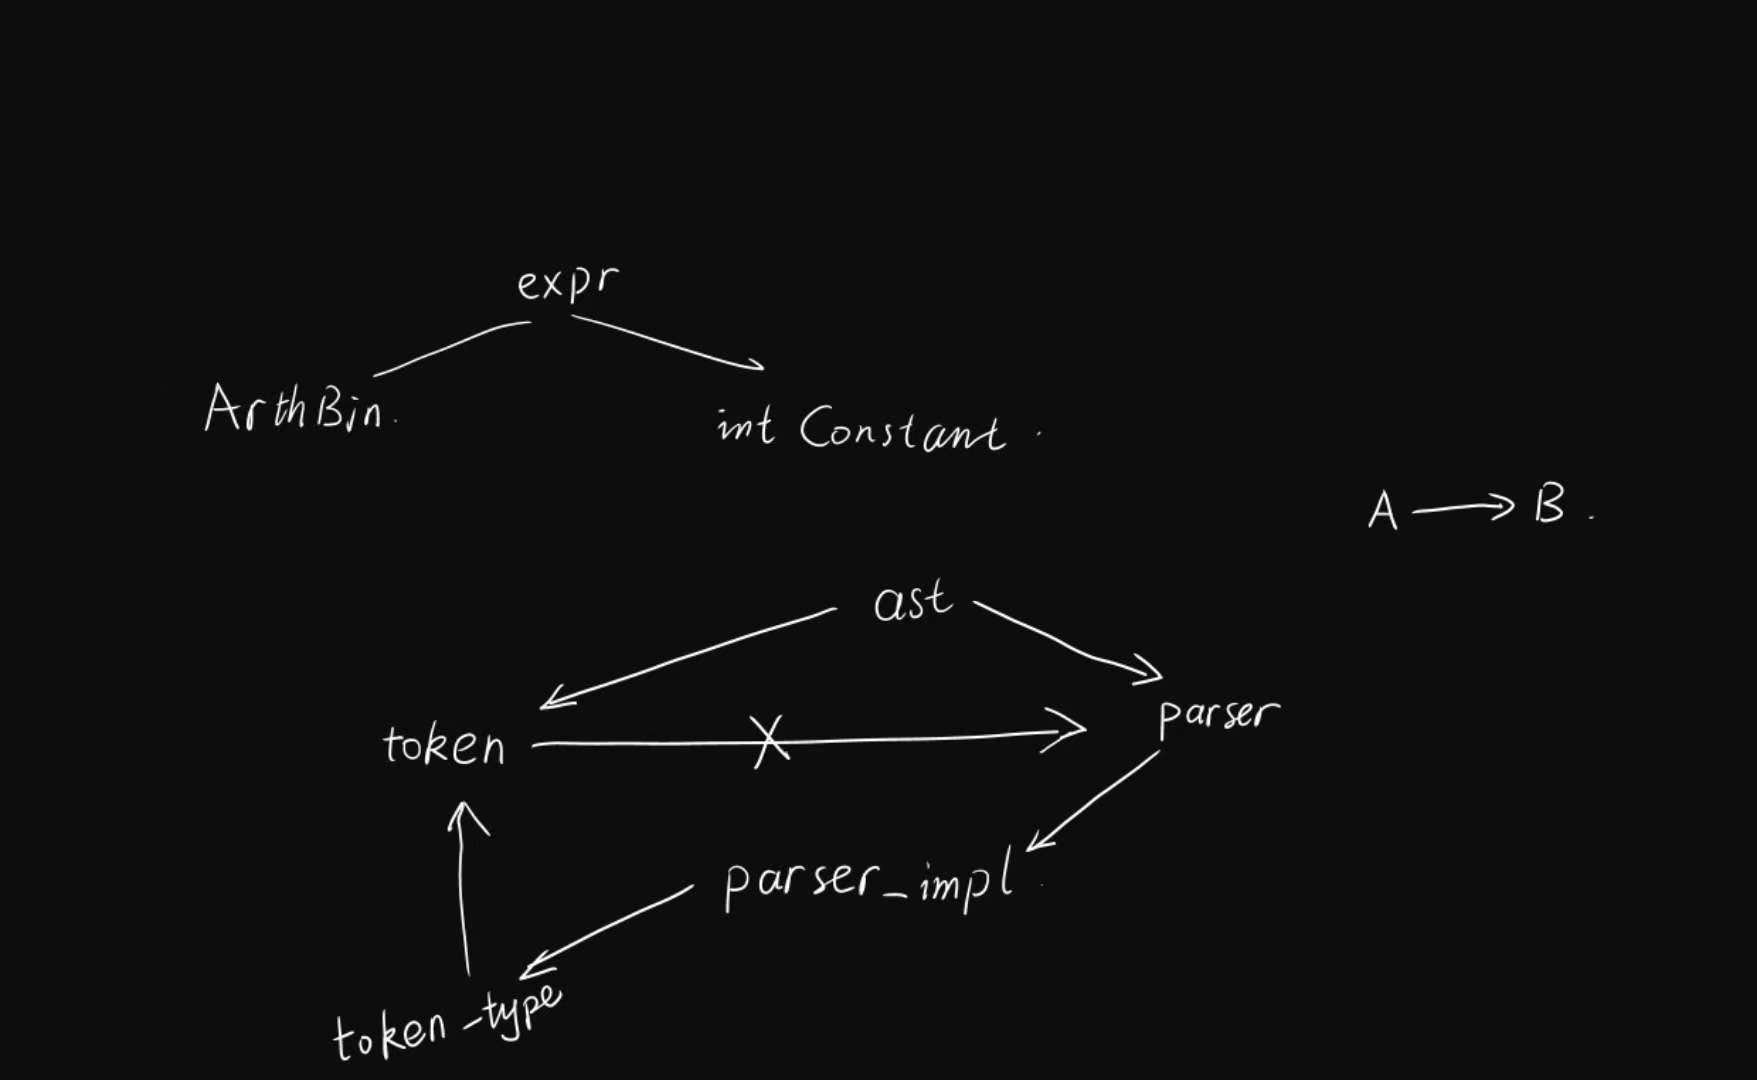 expr
ArthBin.
int Constant.
A → B.
ast
token
parser
parser_impl.
token-type